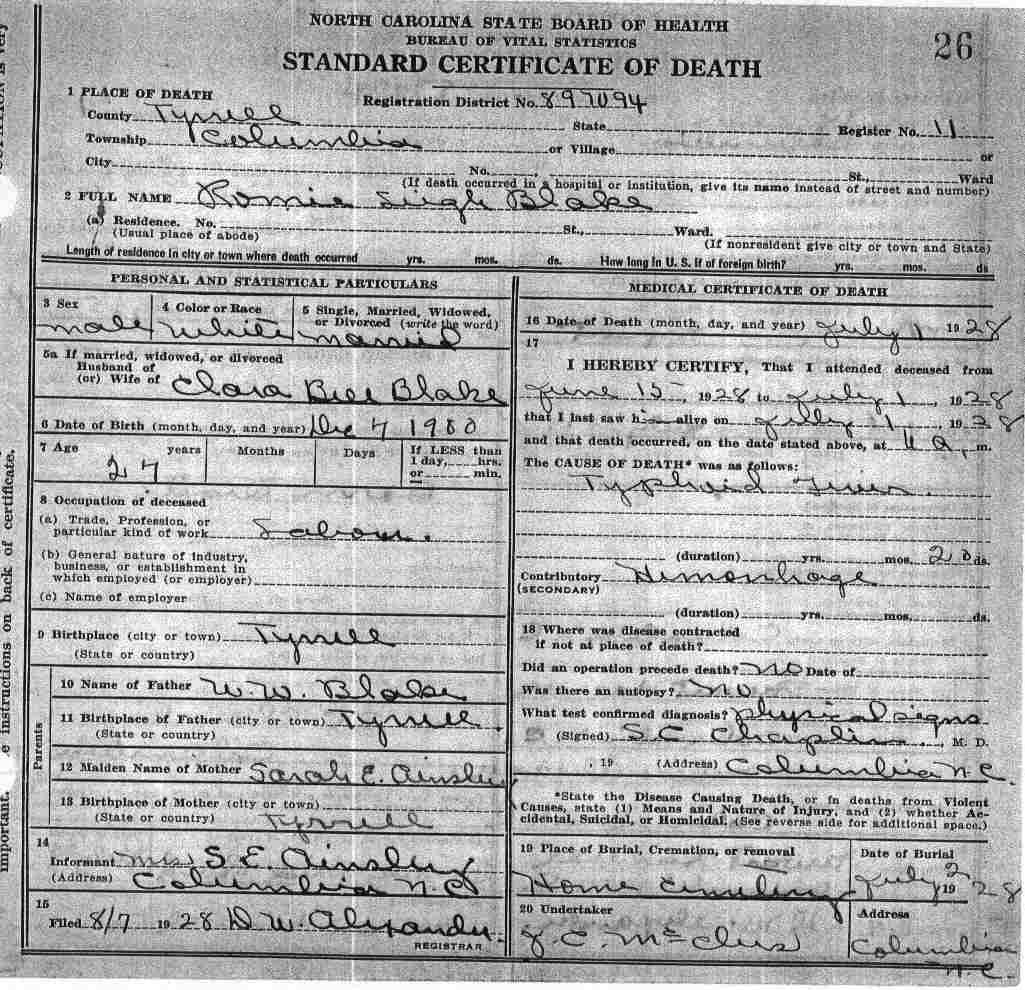 NORTH CAROLINA STATE BOARD OF HEALTH
BUREAU OF VITAL STATISTICS
26
STANDARD CERTIFICATE OF DEATH
1 PLACE OF DEATH
Registration District No. 897094
County Tyrrell State Register No. 11
Township Columbia or Village or
City No. St., Ward
(If death occurred in a hospital or institution, give its name instead of street and number)
2 FULL NAME Romie Blake
(a) Residence. No. St., Ward.
(Usual place of abode) (If nonresident give city or town and State)
Length of residence in city or town where death occurred yrs. mos. ds. How long in U. S. if of foreign birth? yrs. mos. ds
PERSONAL AND STATISTICAL PARTICULARS
3 Sex
male
4 Color or Race
White
5 Single, Married, Widowed,
or Divorced (write the word)
married
5a If married, widowed, or divorced
Husband of
(or) Wife of Clara Bell Blake
6 Date of Birth (month, day, and year) Dec 7 1900
7 Age years Months Days If LESS than
1 day, hrs.
or min.
27
8 Occupation of deceased
(a) Trade, Profession, or
particular kind of work Labour.
(b) General nature of industry,
business, or establishment in
which employed (or employer)
(c) Name of employer
9 Birthplace (city or town) Tyrrell
(State or country)
Parents
10 Name of Father W. W. Blake
11 Birthplace of Father (city or town) Tyrrell
(State or country)
12 Maiden Name of Mother Sarah E. Ainsley
13 Birthplace of Mother (city or town)
(State or country) Tyrrell
14
Informant Mrs S. E. Ainsley
(Address) Columbia N C
15
Filed 8/7 1928 D. W. Alexander
REGISTRAR
MEDICAL CERTIFICATE OF DEATH
16 Date of Death (month, day, and year) July 1 1928
17
I HEREBY CERTIFY, That I attended deceased from
June 15, 1928 to July 1, 1928
that I last saw h alive on July 1, 1928
and that death occurred, on the date stated above, at m.
The CAUSE OF DEATH* was as follows:
Typhoid Fever.
(duration) yrs. mos. 20 ds.
Contributory Hemorrhage
(SECONDARY)
(duration) yrs. mos. ds.
18 Where was disease contracted
if not at place of death?
Did an operation precede death? No Date of
Was there an autopsy? No
What test confirmed diagnosis? Physical signs
(Signed) S. C. Chaplin, M. D.
, 19 (Address) Columbia N. C.
*State the Disease Causing Death, or in deaths from Violent
Causes, state (1) Means and Nature of Injury, and (2) whether Ac-
cidental, Suicidal, or Homicidal. (See reverse side for additional space.)
19 Place of Burial, Cremation, or removal
Home Cemetery
Date of Burial
July 2 1928
20 Undertaker
Address
Columbia
N. C.
important. e instructions on back of certificate.